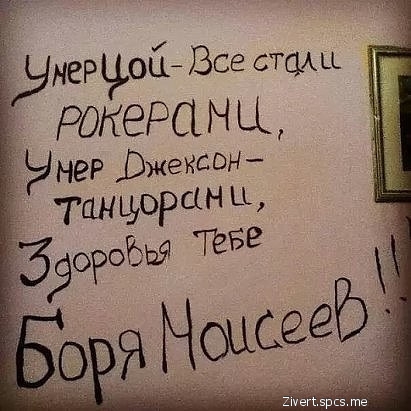 Умер Цой - Все стали
рокерами,
Умер Джексон -
танцорами,
Здоровья тебе
Боря Моисеев!!
Zivert.spcs.me